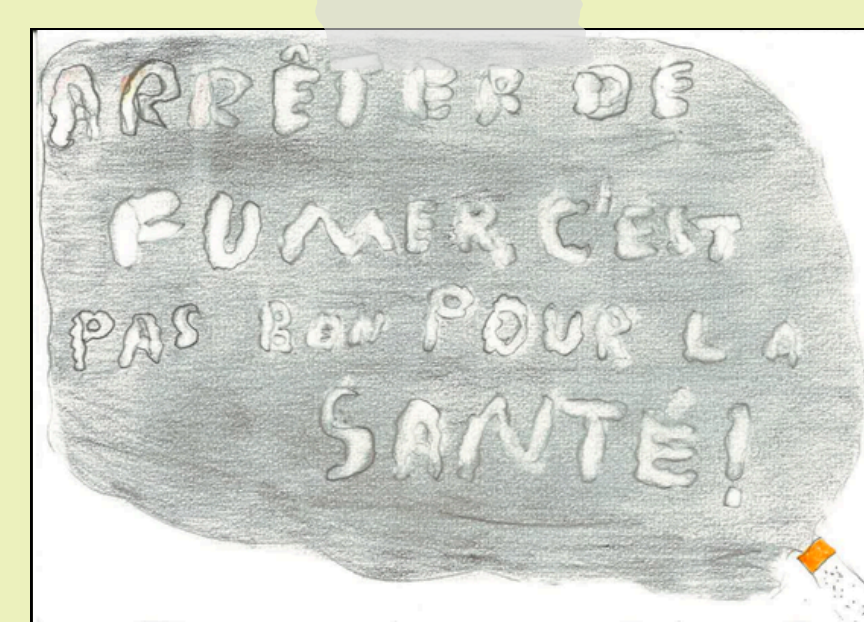 ARRÊTER DE
FUMER, C'EST
PAS BON POUR LA
SANTÉ!